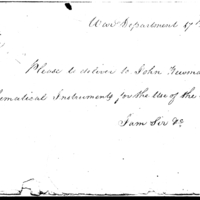 War Department 17th
Please to deliver to John Newma
hematical Instruments for the Use of the
I am Sir &c